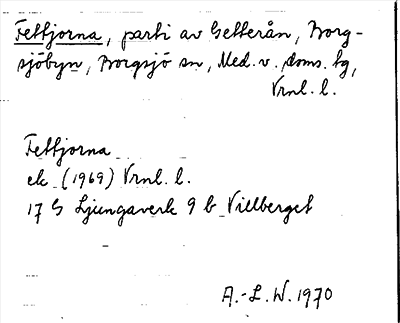 Fettjorna, parti av Getterån, Borg-
sjöbyn, Borgsjö sn, Med. v. doms. tg,
Vrnl. l.
Fettjorna
ek (1969) Vrnl. l.
17 G Ljungaverk 9 b Villberget
A.-L. W. 1970